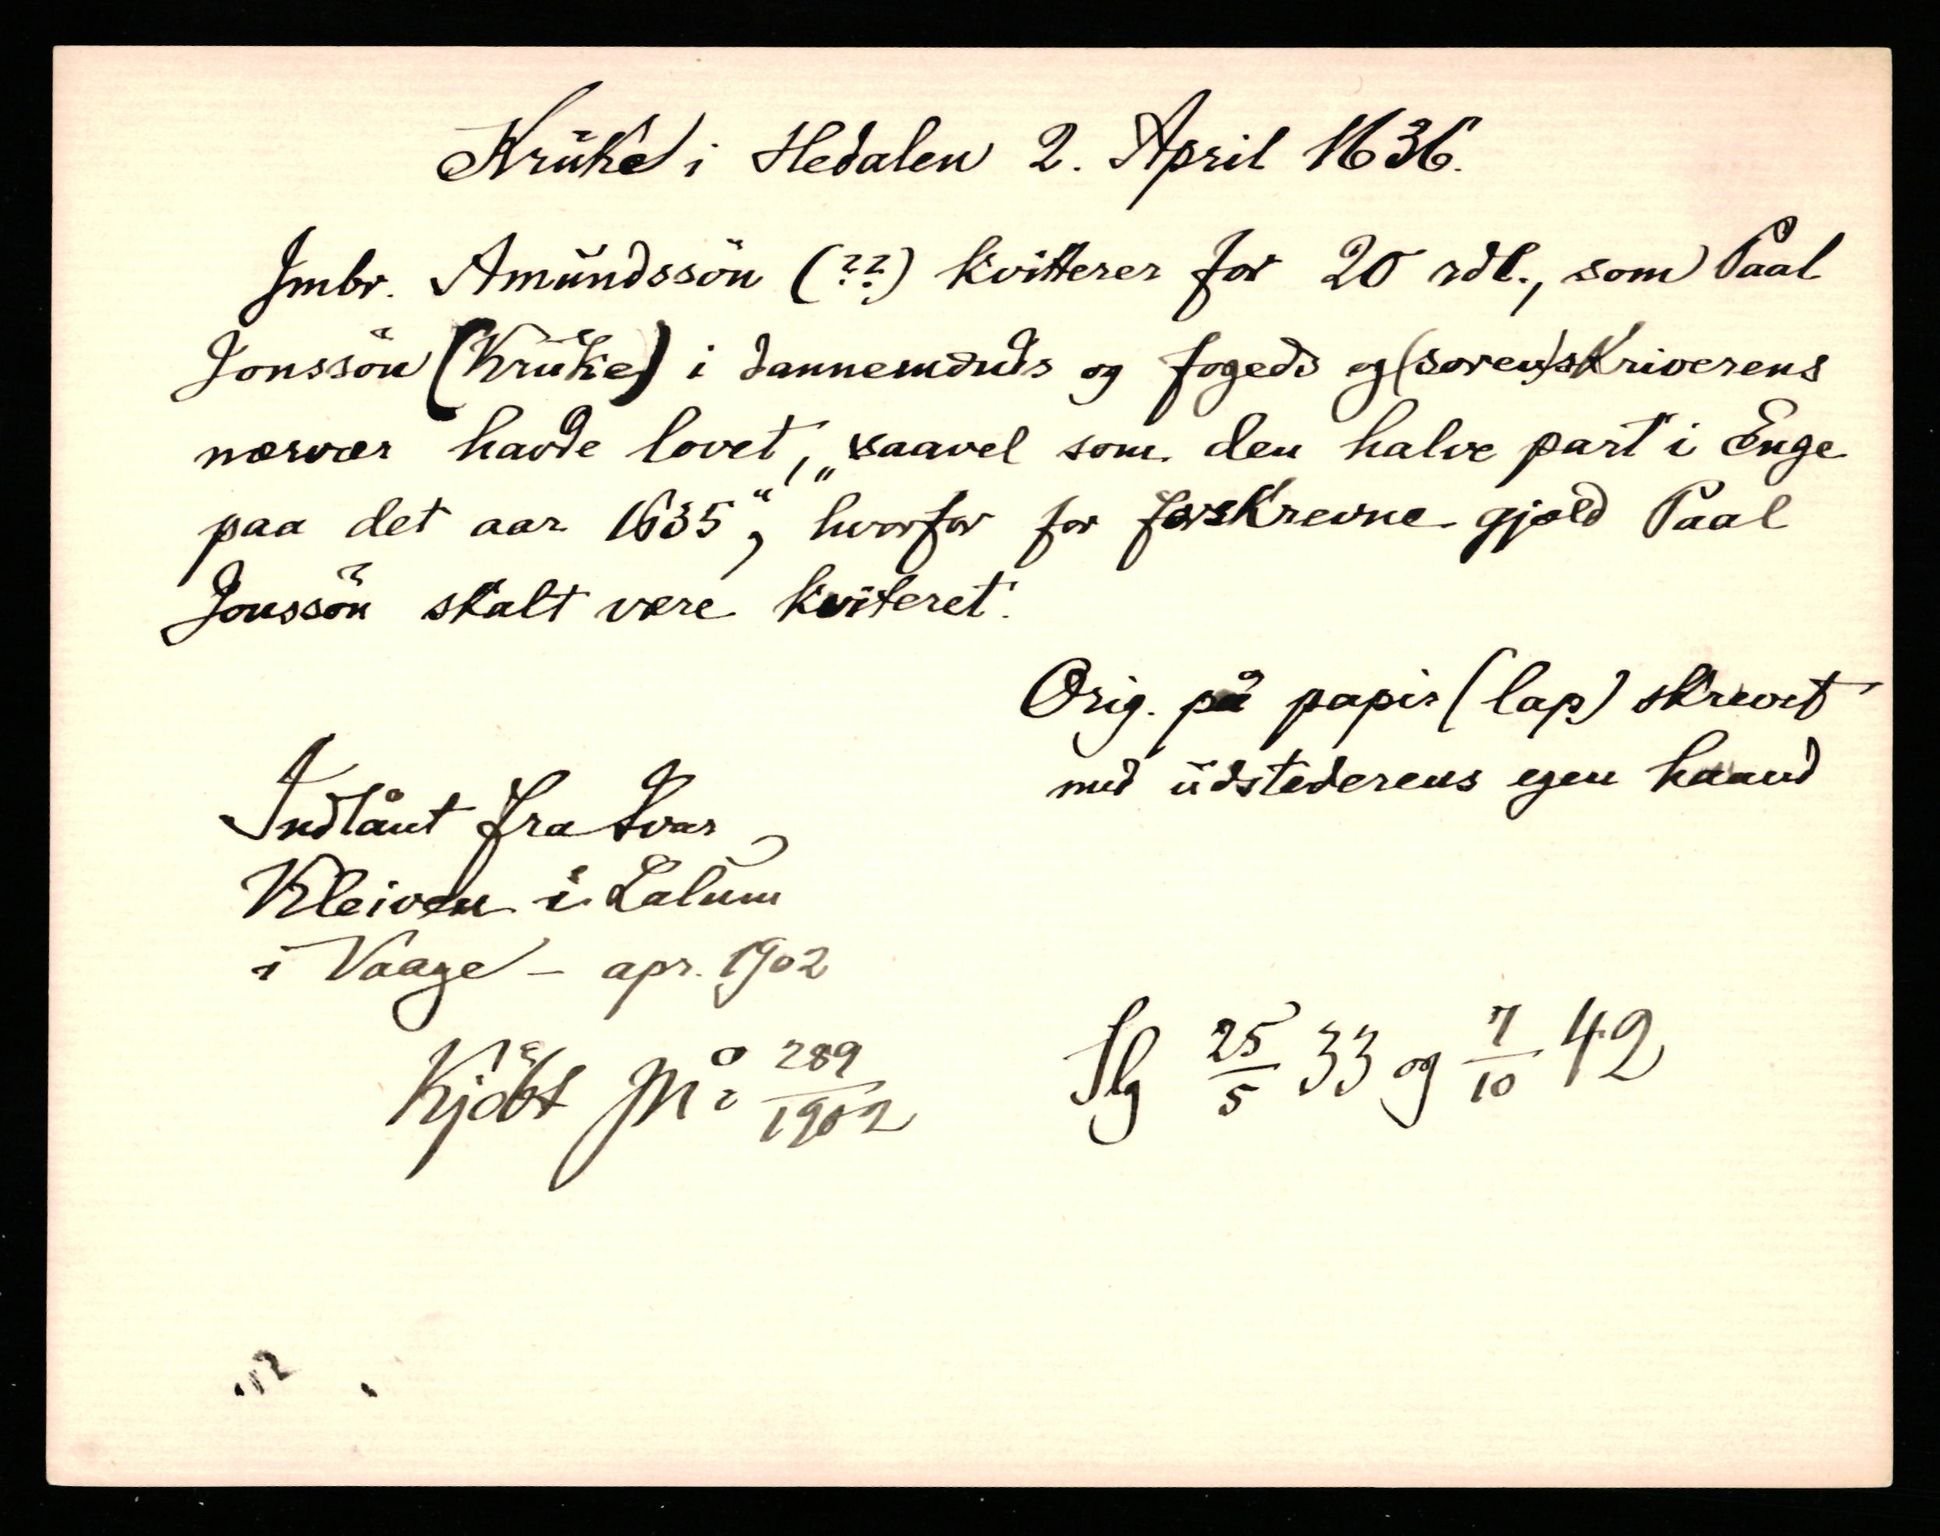 Krüke i Hedalen 2. April 1636.
Jmbr. Amündssön (??) kvitterer for 20 rdl., som Paal
Jonssön (Krüke) i dannemænds og fogeds og (soren)skriverens
nærvær havde lovet, „saavel som den halve part i Enge
paa det aar 1635“, hvorfor for forskrevne gjæld Paal
Jonssön skalt være kviteret.
Orig. på papir (lap) skrevet
med üdstederens egen haand
Indlånt fra Ivar
Kleiven i Lalüm
i Vaage – apr. 1902
Kjöbt 289/1902
25/5 33 og 7/10 42